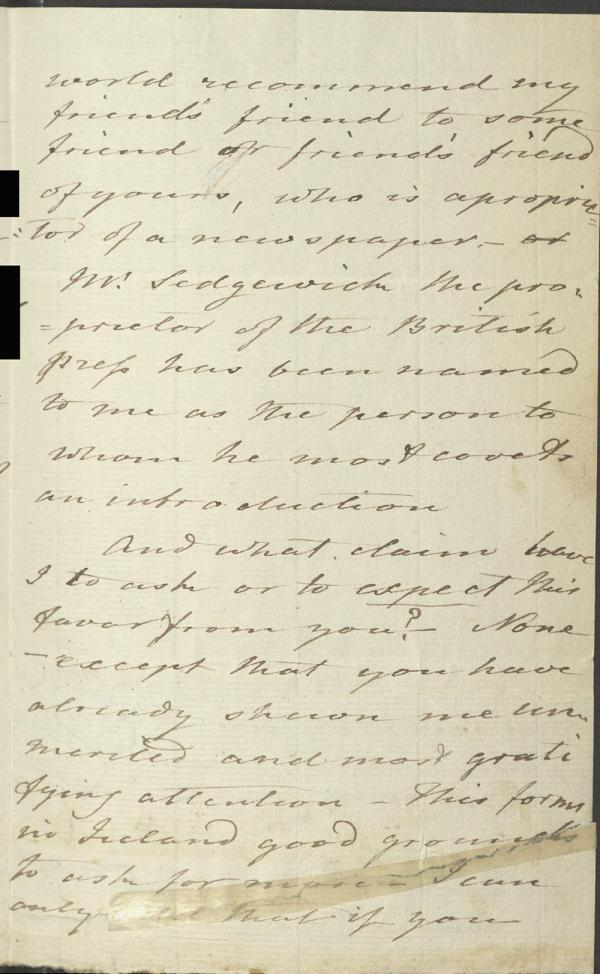 would recommend my
friend's friend to some
friend or friend's friend
of yours, who is a proprie
=tor of a newspaper. – or
Mr. Sedgewick the pro-
=prietor of the British
Press has been named
to me as the person to
whom he most covets
an introduction
And what claim have
I to ask or to expect this
favor from you? – None
– except that you have
already shewn me un-
merited and most grati
fying attention – This forms
in Ireland good grounds
to ask for more – I can
only add that if you